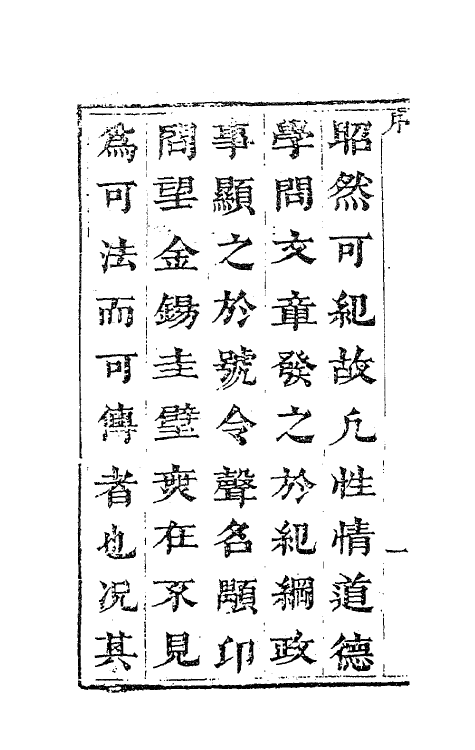 序
昭然可紀故凢性情道德
學問文章發之於紀綱政
事顯之於號令聲名顒印
問望金錫圭璧奭在不見
為可法而可傳者也况其
一